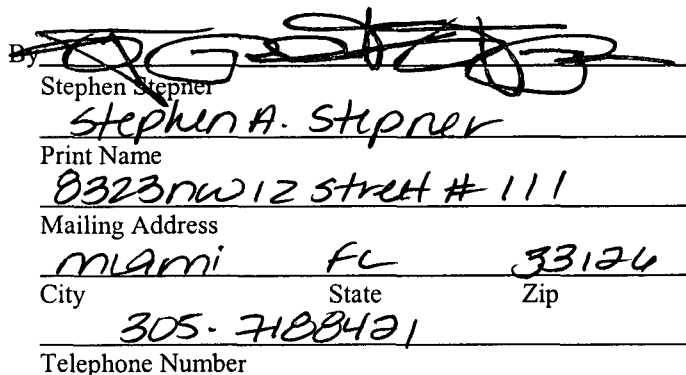 By
Stephen Stepner
Stephen A. Stepner
Print Name
8323 NW 12 Street # 111
Mailing Address
Miami FL 33126
City State Zip
305-7188421
Telephone Number